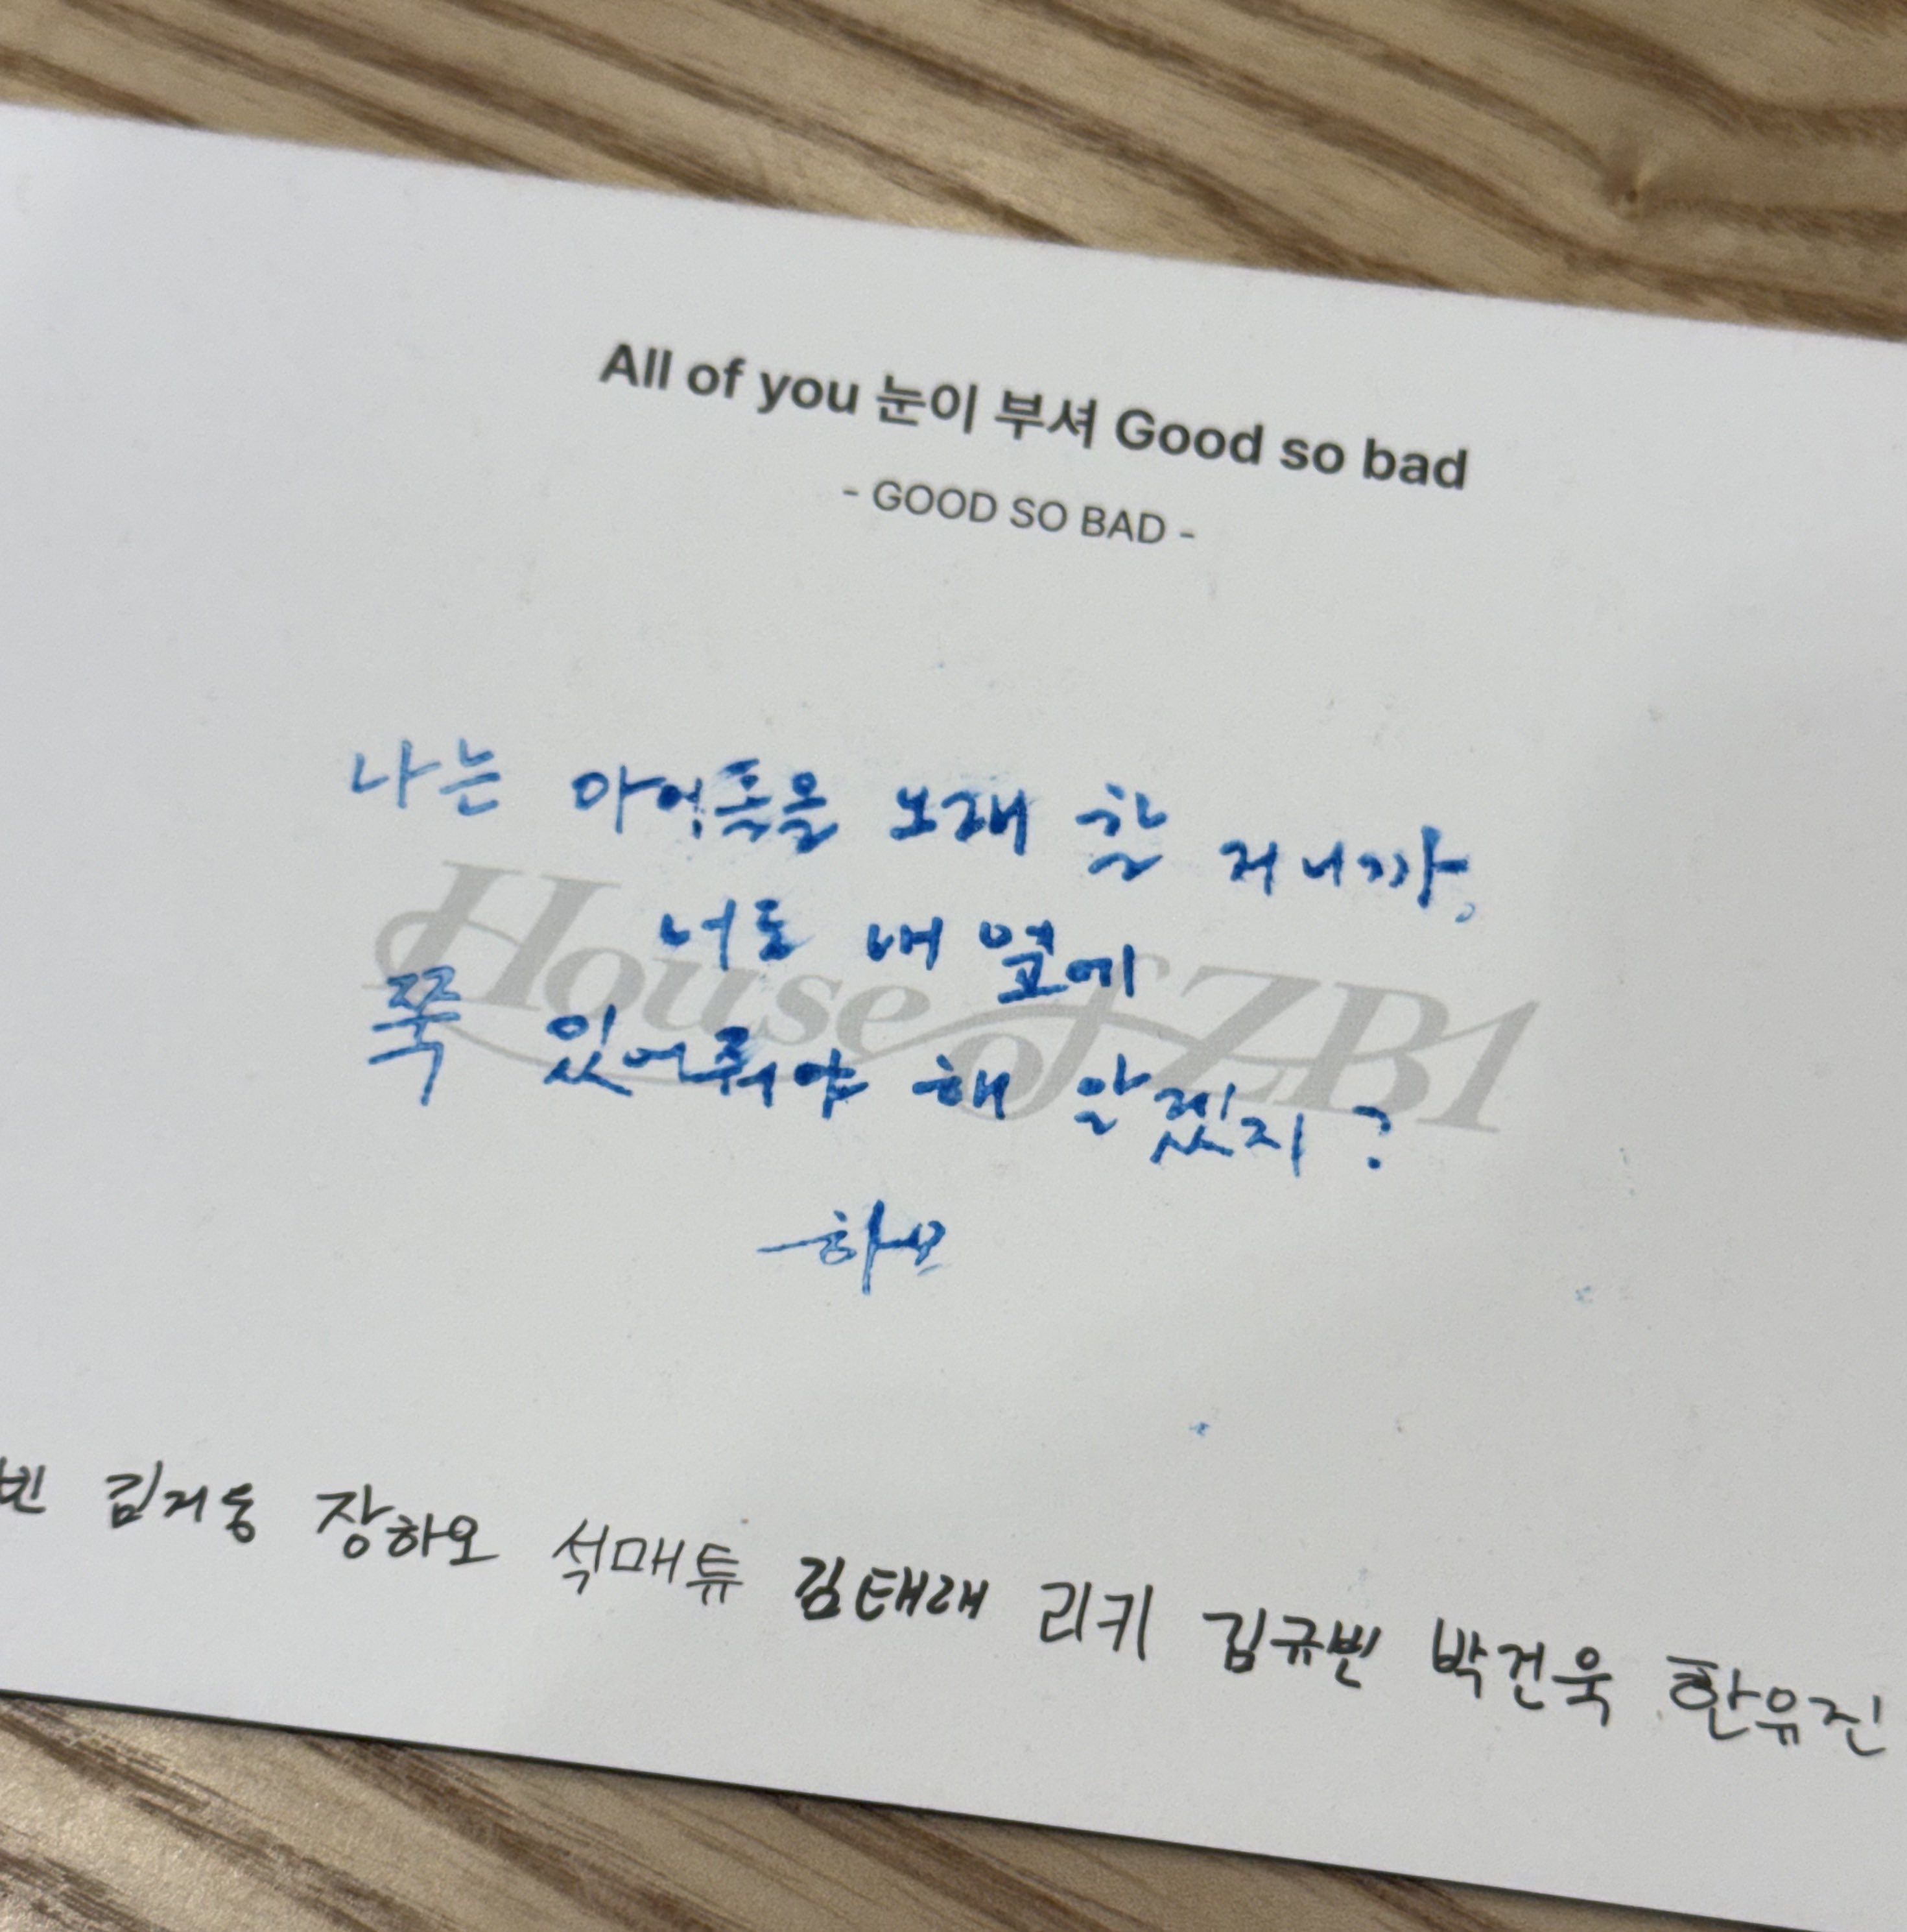 All of you 눈이 부셔 Good so bad
- GOOD SO BAD -
나는 아이돌을 노래 할 거니까,
너도 내 옆에
쭉 있어줘야 해 알겠지?
House of ZB1
-하오
빈 김지웅 장하오 석매튜 김태래 리키 김규빈 박건욱 한유진